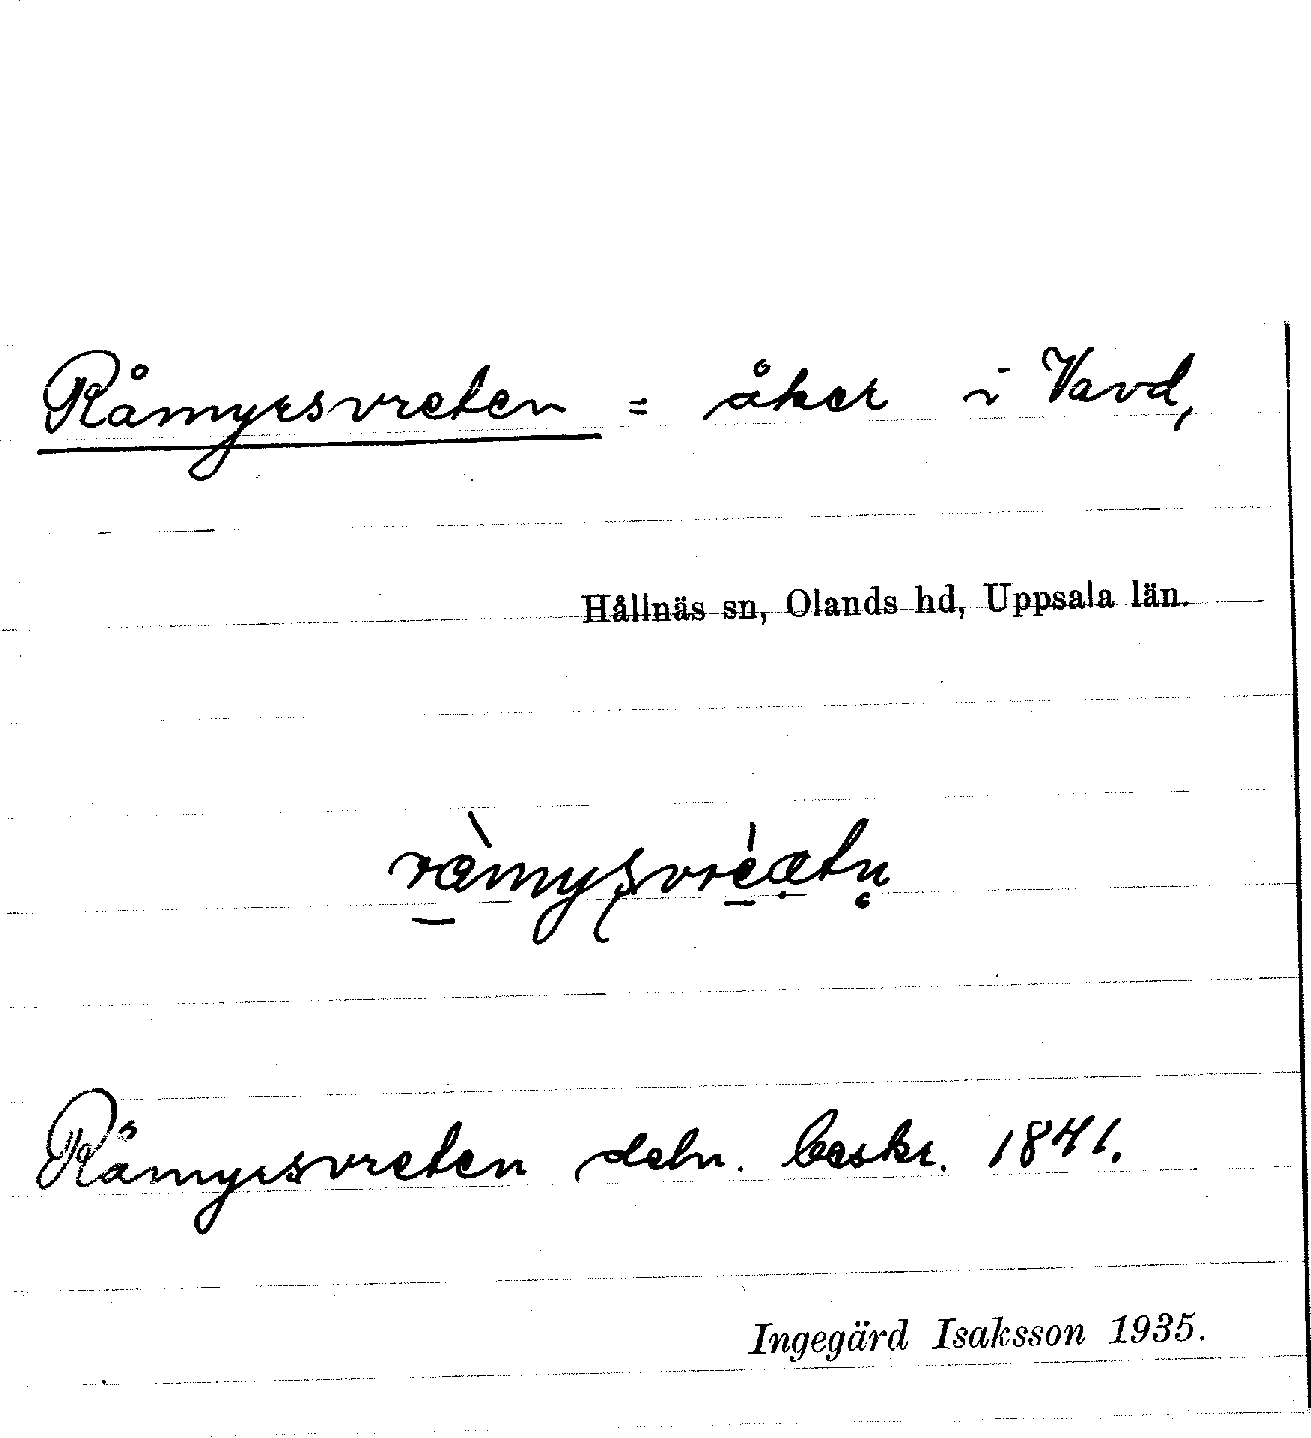 Råmyrsvreten = åker i Vavd,
Hållnäs sn, Olands hd, Uppsala län.
Råmyrsvreten deln. beskr. 1841.
Ingegärd Isaksson 1935.